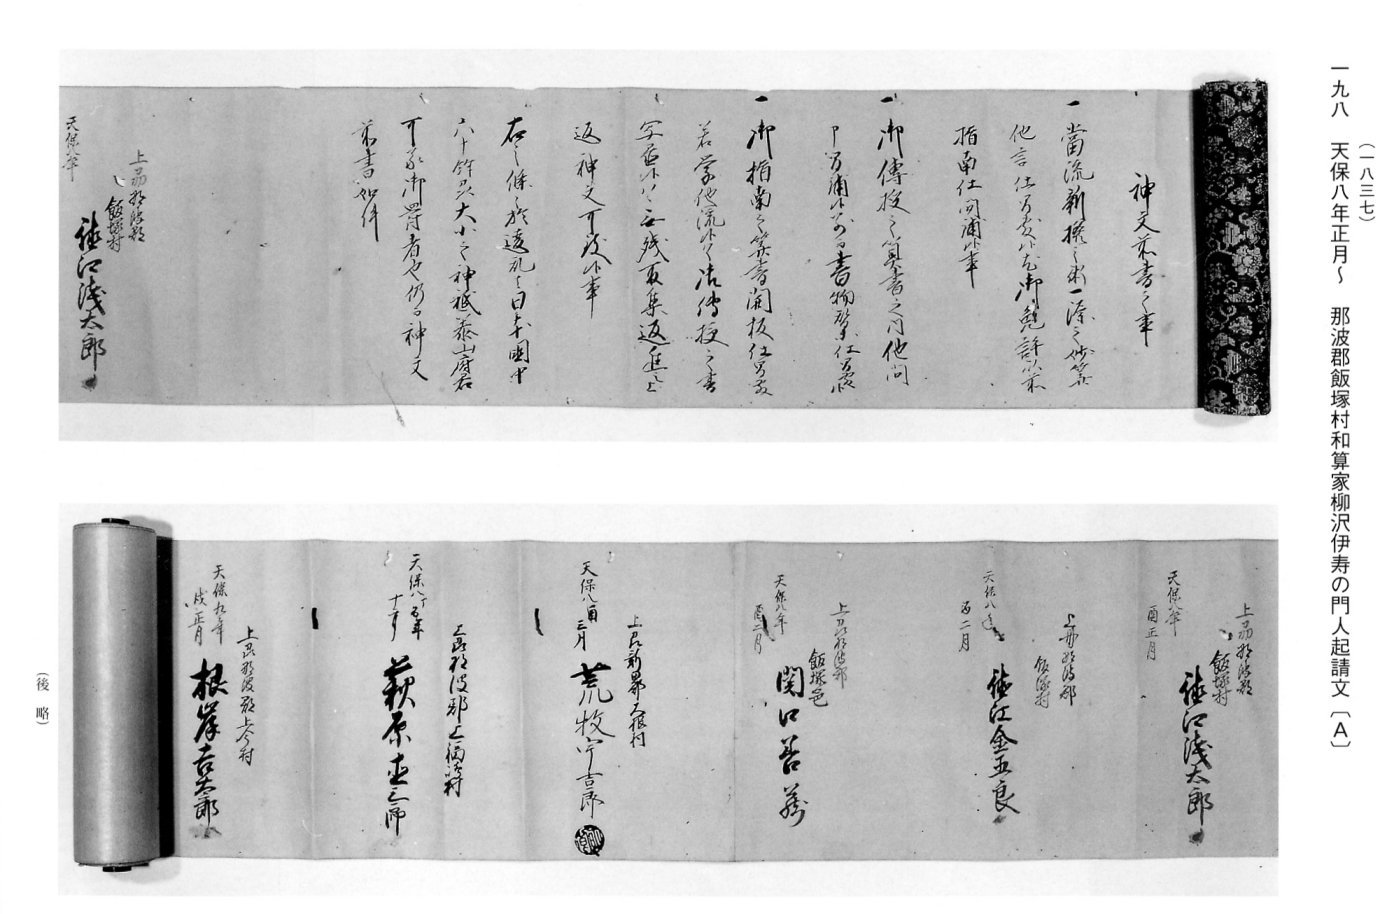 一九八　天保八年正月〜　那波郡飯塚村和算家柳沢伊寿の門人起請文〔A〕
（一八三七）
神文前書之事
一當流新撰之術一源之妙算
他言仕間敷候尤御免許以前
指南仕間鋪候事
一御傳授之算書之門他問
申間鋪候
一御指南之算書開板仕間敷
若学他流候ハ丶 御傳授之書
写 不残取集返進之上
返神文可致候事
右之條々於違乱ハ日本國中
六十餘州大小之神祇泰山府君
可蒙御罸者也仍而神文
前書如件
天保八年
上毛那波郡
飯塚村
徳江浅太郎
上毛那波郡
飯塚村
徳江浅太郎
天保八年
酉正月
上毛那波郡
飯塚村
徳江金五良
天保八年
酉二月
上毛那波郡
飯塚邑
関口善蔵
天保八年
酉二月
上毛前橋郡天狗村
荒牧宇吉郎
天保八酉三月
上毛那波郡上福嶋村
萩原
天保八丁酉年
十一月
上毛那波郡上今村
根岸吉太郎
天保九年
戌正月
（後　略）